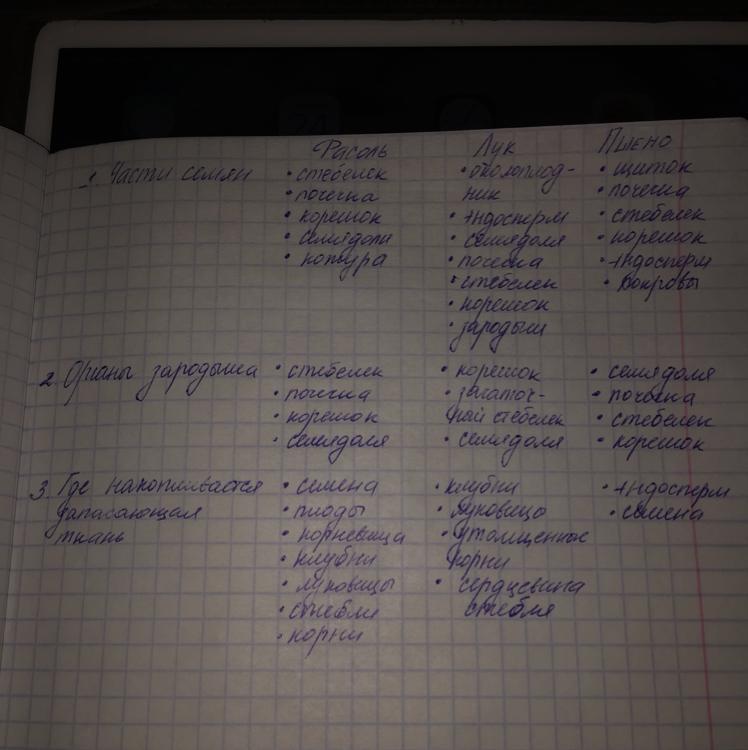 Фасоль Лук Пшено
1. Части семян
• стебелек
• почечка
• корешок
• семядоля
• кожура
• околоплод-
ник
• эндосперм
• семядоля
• почечка
• стебелек
• корешок
• зародыш
• щиток
• почечка
• стебелек
• корешок
• эндосперм
• покровы
2. Органы зародыша
• стебелек
• почечка
• корешок
• семядоля
• корешок
• зачаточ-
ный стебелек
• семядоля
• семядоля
• почечка
• стебелек
• корешок
3. Где накапливается
запасающая
ткань
• семена
• плоды
• корневища
• клубни
• луковицы
• стебли
• корни
• клубни
• луковица
• утолщенные
корни
• сердцевина
стебля
• эндосперм
• семена